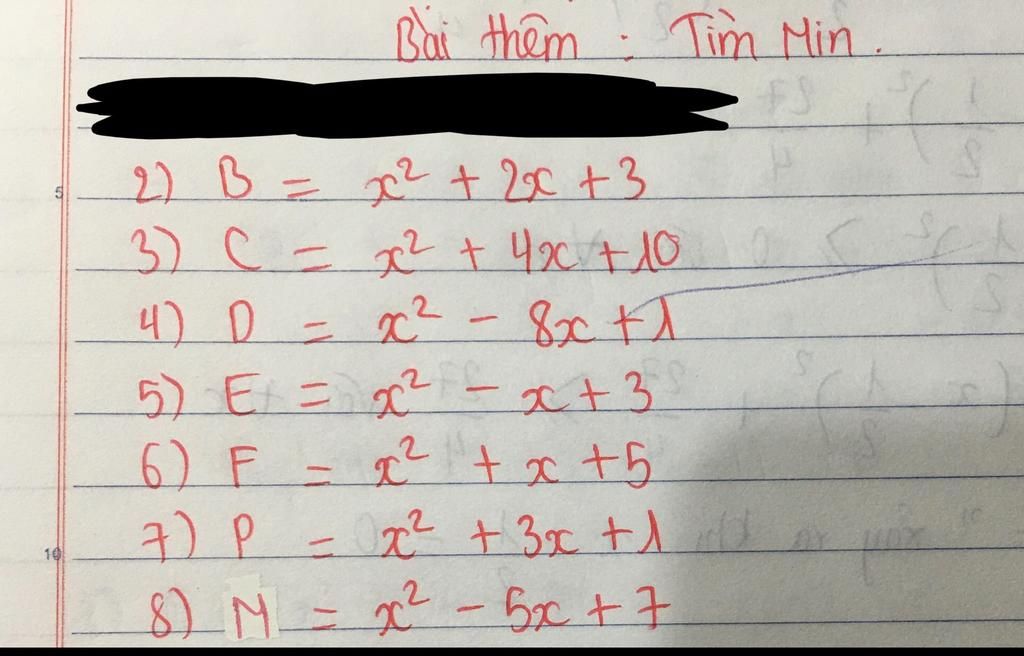 Bài thêm : Tìm Min.
2) B = x² + 2x + 3
3) C = x² + 4x + 10
4) D = x² - 8x + 1
5) E = x² - x + 3
6) F = x² + x + 5
7) P = x² + 3x + 1
8) M = x² - 5x + 7